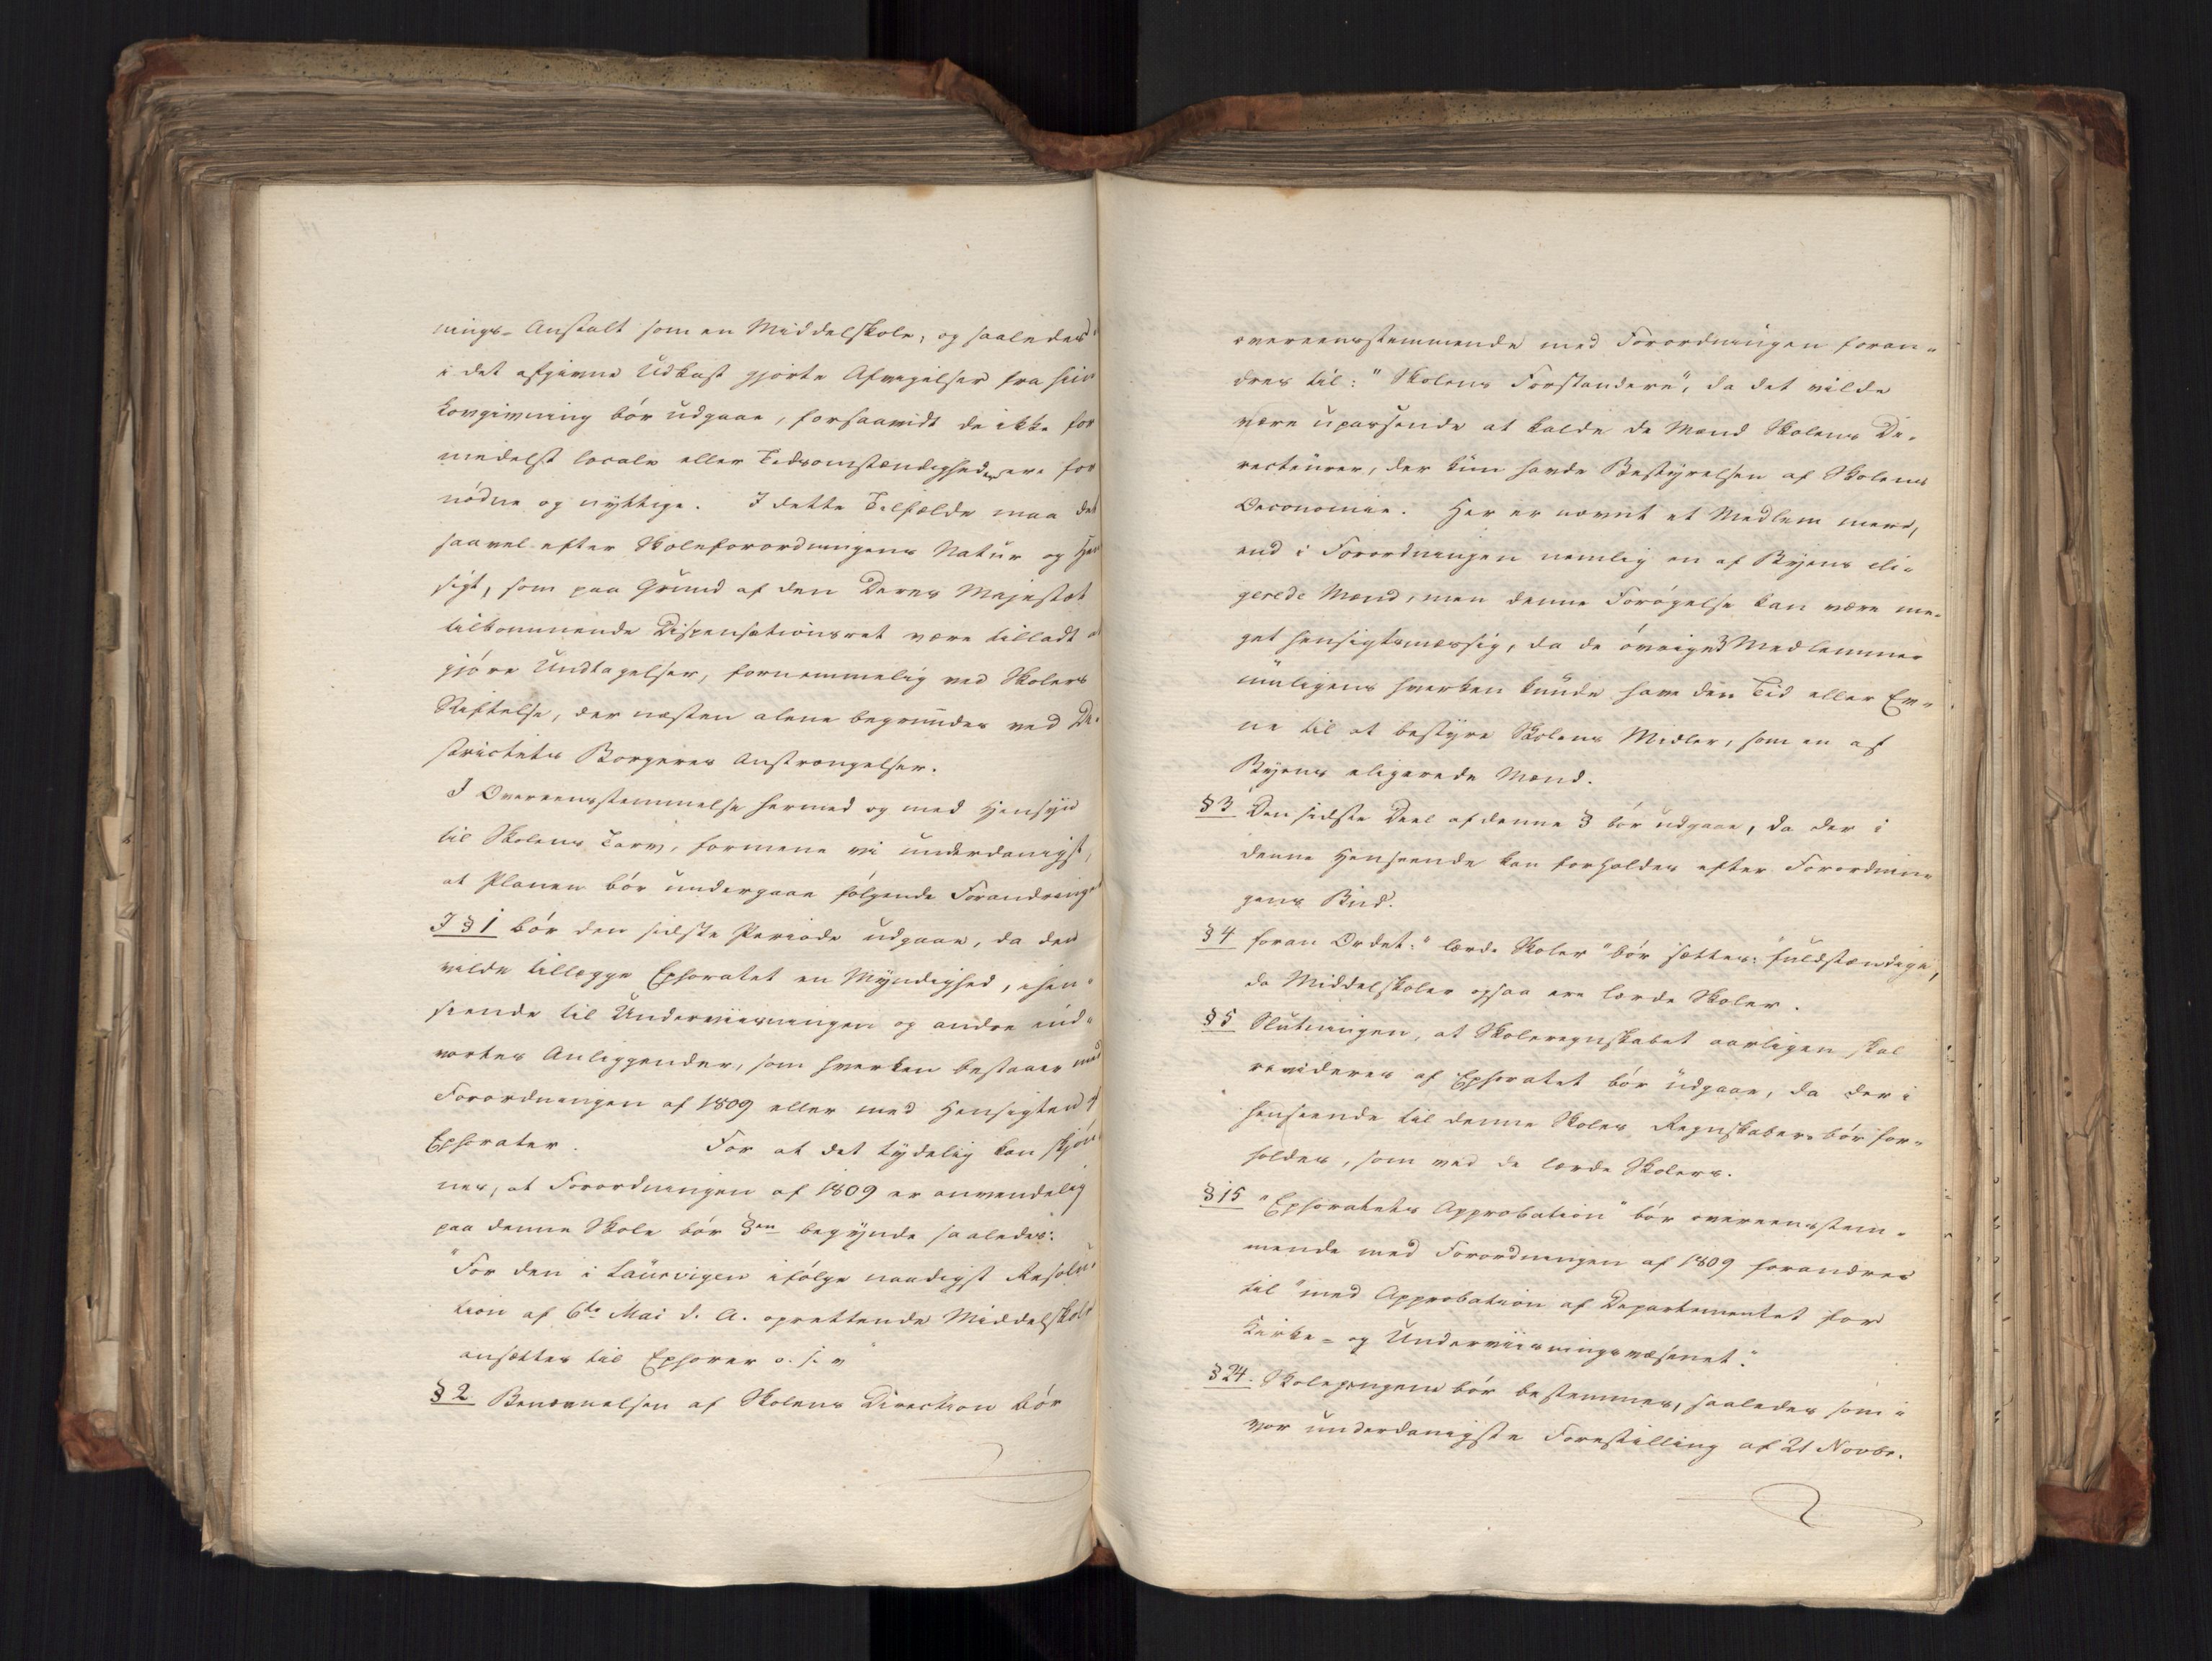 nings- Anstalt som en Middelskole, og saaledes
i det afgivne Udkast gjorte Afvigelser fra hiin
Lovgivning bör udgaae, forsaavidt de ikke for
medelst locale eller Tidsomstændigheder ere for
nödne og nyttige. I dette Tilfælde maa det
saavel efter Skoleforordningens Natur og Hen
sigt, som paa Grund af den Deres Majestæt
tilkommende Dispensationsret være tilladt at
gjöre Undtagelser, fornemmelig ved Skolers
Stiftelse, der næsten alene begrundes ved Di-
strictets Borgeres Anstrængelser.
I Overeensstemmelse hermed og med Hensyn
til Skolens Tarv, formene vi underdanigst,
at Planen bör undergaae fölgende Forandringer
I § 1 bör den sidste Periode udgaae, da den
vilde tillægge Ephoratet en Myndighed, i hen-
seende til Underviisningen og andre ind-
vortes Anliggender, som hverken bestaaer med
Forordningen af 1809 eller med Hensigten af
Ephorater. For at det tydelig kan skjön-
nes, at Forordningen af 1809 er anvendelig
paa denne Skole bör §en begynde saaledes:
"For den i Laurvigen ifölge naadigst Resolu-
tion af 6te Mai d. A. oprettende Middelskole
ansættes til Ephorer o. s. v"
§ 2 Benævnelsen af Skolens Direction bör
overeensstemmende med Forordningen foran-
dres til: "Skolens Forstandere", da det vilde
være upassende at kalde de Mænd Skolens Di-
recteurer, der kun havde Bestyrelsen af Skolens
Oeconomie. Her er nævnt et Medlem mere,
end i Forordningen nemlig en af Byens eli-
gerede Mænd, men denne Forögelse kan være me-
get hensigtsmæssig, da de övrige 3 Medlemmer
muligens hverken kunde have den Tid eller Ev-
ne til at bestyre Skolens Midler, som en af
Byens eligerede Mænd.
§ 3 Den sidste Deel af denne § bör udgaae, da der i
denne Henseende kan forholdes efter Forordnin-
gens Bud.
§ 4 foran Ordet: "lærde Skoler" bör sættes: fuldstændige,
da Middelskoler ogsaa ere lærde Skoler.
§ 5 Slutningen, at Skoleregnskabet aarligen skal
revideres af Ephoratet bör udgaae, da der i
henseende til denne Skoles Regnskaber bör for-
holdes, som ved de lærde Skolers.
§ 15 "Ephoratets Approbation" bör overeensstem-
mende med Forordningen af 1809 forandres
til "med Approbation af Departementet for
Kirke- og Underviisningsvæsenet."
§ 24. Skolepengene bör bestemmes, saaledes som i
vor underdanigste Forestilling af 21 Novbr.